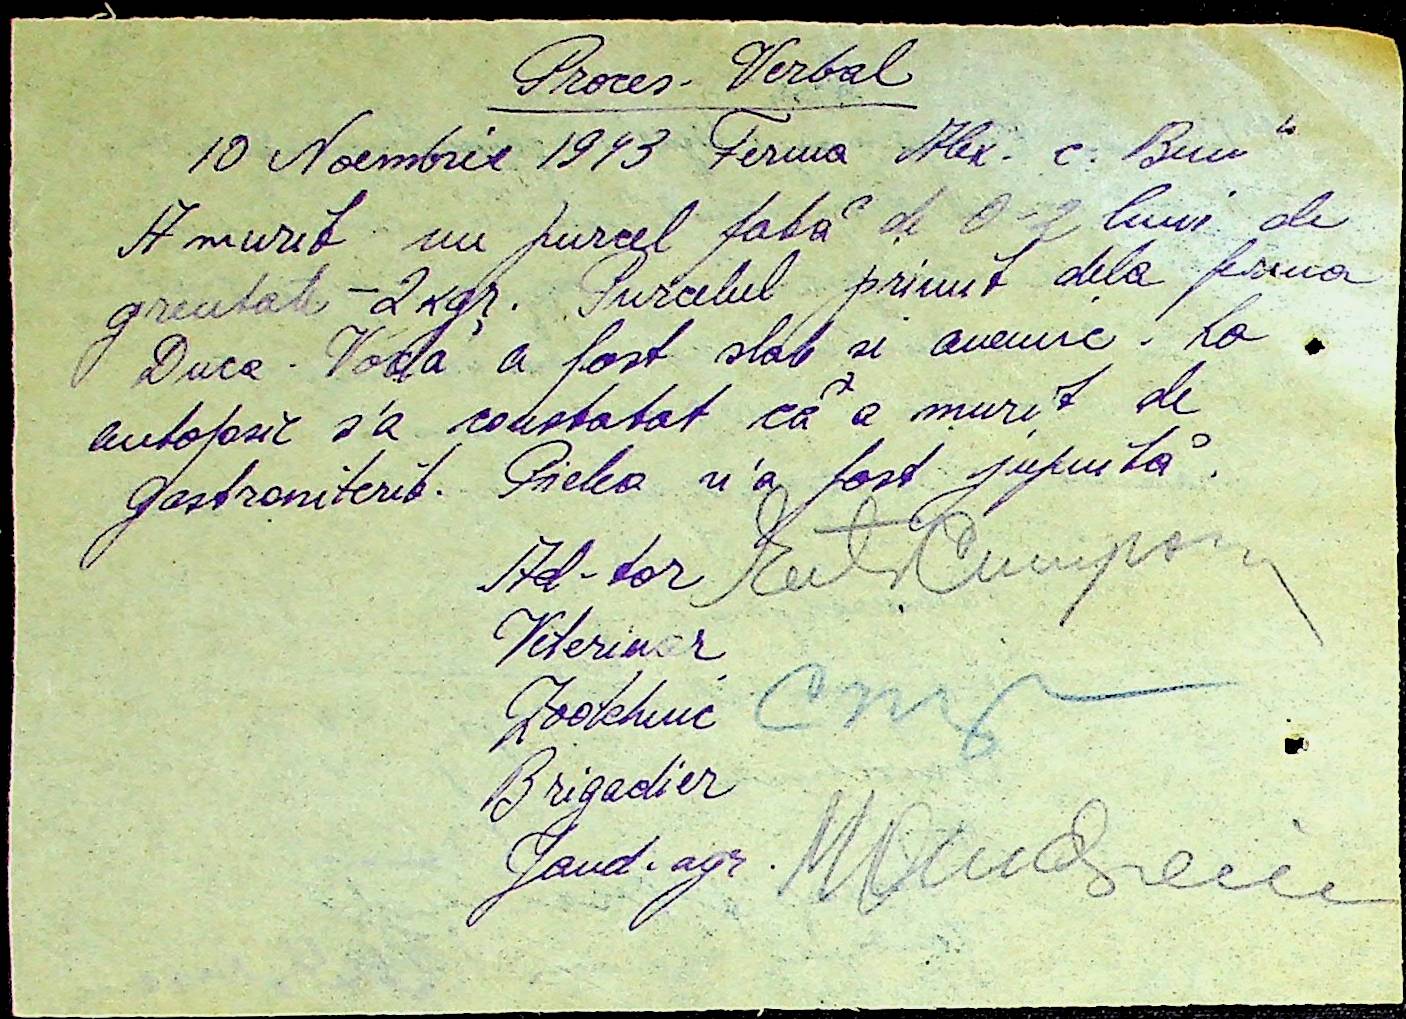 Proces-Verbal
10 Noembrie 1943 Ferma Alex. c. "
A murit un purcel fată de 0-2 luni de
greutate - 2 kgr. Purcelul primit dela ferma
Duca-Vodă a fost slab si anemic. La
autopsie s'a constatat că a murit de
gastroniterit. Pielea n'a fost jupuită.
Ad-tor
Veterinar
Zootehnic
Brigadier
Jand. agr.